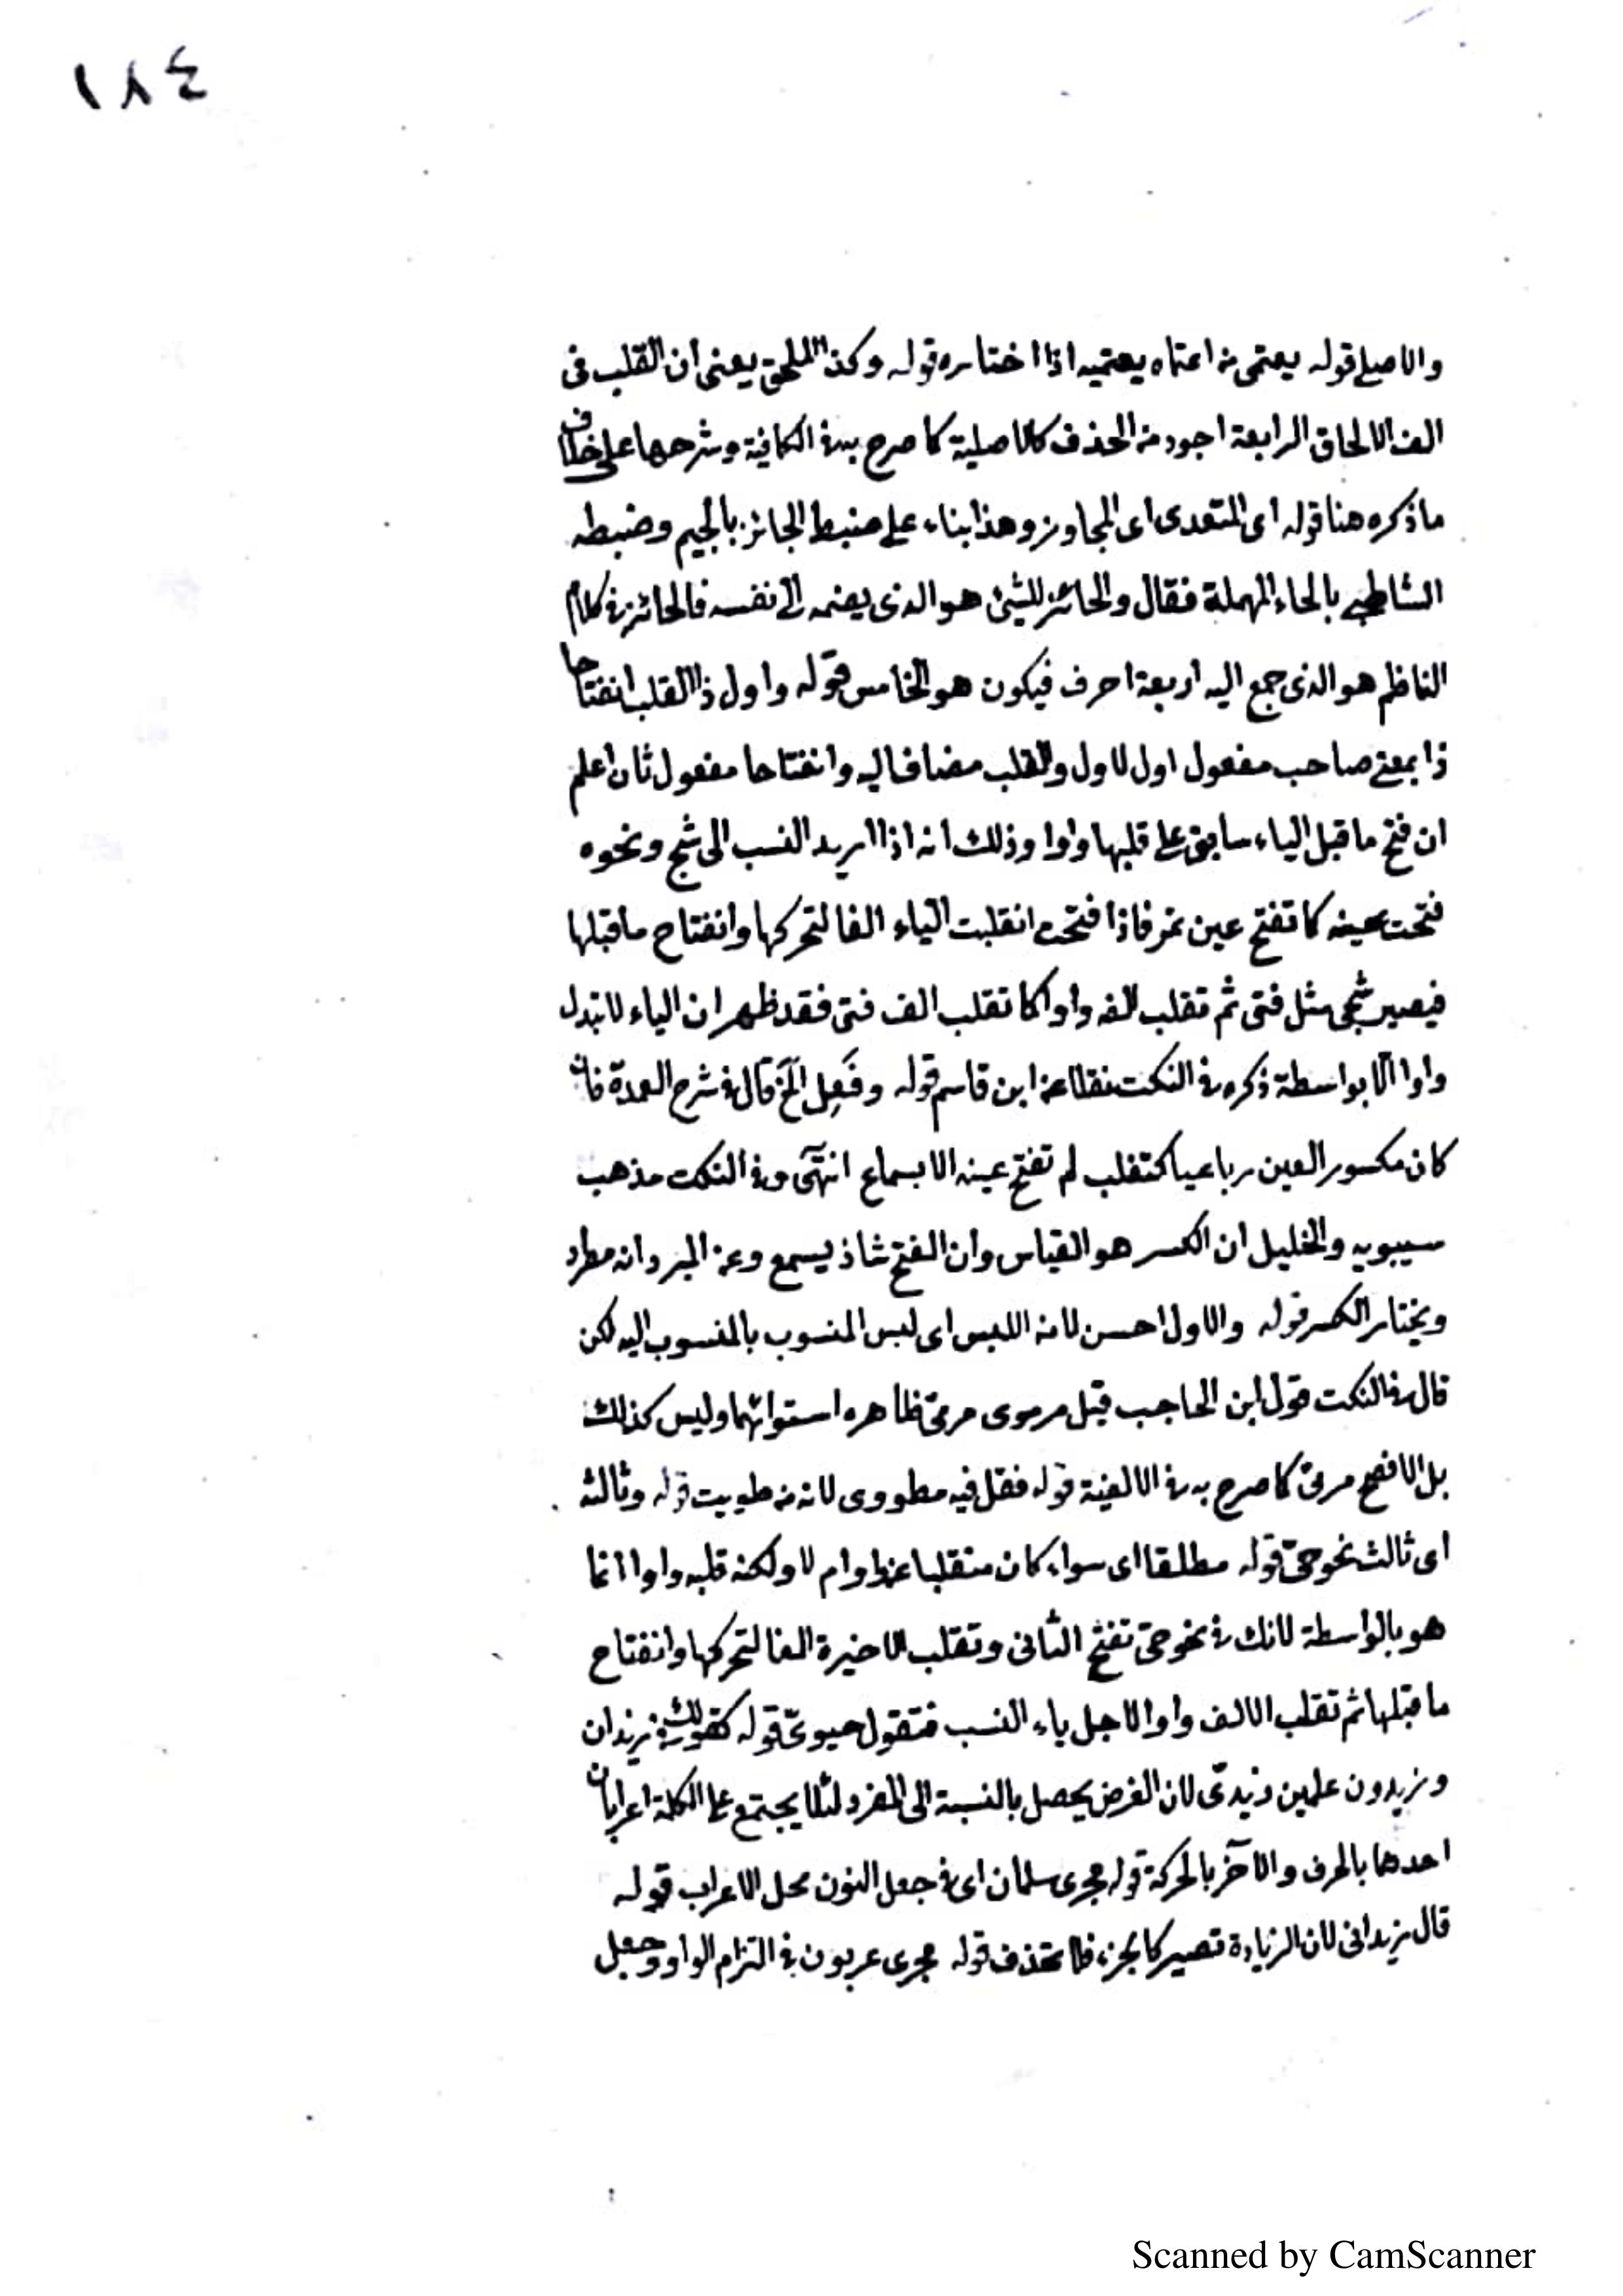 ١٨٤
والاصلي قوله يعتمى من اعتماه يعتميه اذا اختاره قوله وكذا الملحق يعنى ان القلب فى
الف الالحاق الرابعة اجود من الحذف كالاصلية كما صرح به فى الكافية وشرحها على خلاف
ماذكره هنا قوله اى المتعدى اى المجاوز وهذا بناء على ضبط الجائز بالجيم وضبطه
الشاطبى بالحاء المهملة فقال والحائز للشئ هو الذى يضمه الى نفسه فالحائز فى كلام
الناظم هو الذى جمع اليه اربعة احرف فيكون هو الخامس قوله واول ذا القلب انفتاحا
ذا بمعنى صاحب مفعول اول لاول والقلب مضاف اليه وانفتاحا مفعول ثان اعلم
ان فتح ما قبل الياء سابق على قلبها واوا وذلك انه اذا اريد النسب الى شج ونحوه
فتحت عينه كما تفتح عين نمر فاذا فتحت انقلبت الياء الفا لتحركها وانفتاح ما قبلها
فيصير شجى مثل فتى ثم تقلب الفه واوا كما تقلب الف فتى فقد ظهر ان الياء لا تبدل
واوا الا بواسطة ذكره فى النكت نقلا عن ابن قاسم قوله وفَعِل الخ قال فى شرح العمدة فان
كان مكسور العين رباعيا كتغلب لم تفتح عينه الا بسماع انتهى وفى النكت مذهب
سيبويه والخليل ان الكسر هو القياس وان الفتح شاذ يسمع وعن المبرد انه مطرد
ويختار الكسر قوله والاول احسن لامن اللبس اى لبس المنسوب بالمنسوب اليه لكن
قال فى النكت قول ابن الحاجب قيل مرموى مرمىّ ظاهره استوائهما وليس كذلك
بل الافصح مرمىّ كما صرح به فى الالفية قوله فقل فيه مطووى لانه من طويت قوله وثالثه
اى ثالث نحو حىّ قوله مطلقا اى سواء كان منقلبا عن واو ام لا ولكنه قلبه واوا انما
هو بالواسطة لانك فى نحو حىّ تفتح الثانى وتقلب الاخيرة الفا لتحركها وانفتاح
ما قبلها ثم تقلب الالف واوا لاجل ياء النسب فتقول حيوىّ قوله كقولك فى زيدان
وزيدون علمين زيدىّ لان الغرض يحصل بالنسبة الى المفرد لئلا يجتمع على الكلمة اعرابان
احدهما بالحرف والآخر بالحركة قوله مجرى سلمان اى فى جعل النون محل الاعراب قوله
قال زيدانى لان الزيادة تصير كالجزء فلا تحذف قوله مجرى عربون فى التزام الواو وجعل
Scanned by CamScanner